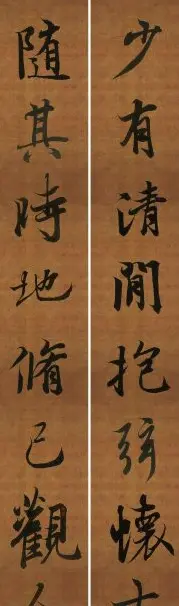 少有清閒抱弦懷
隨其時地脩己觀